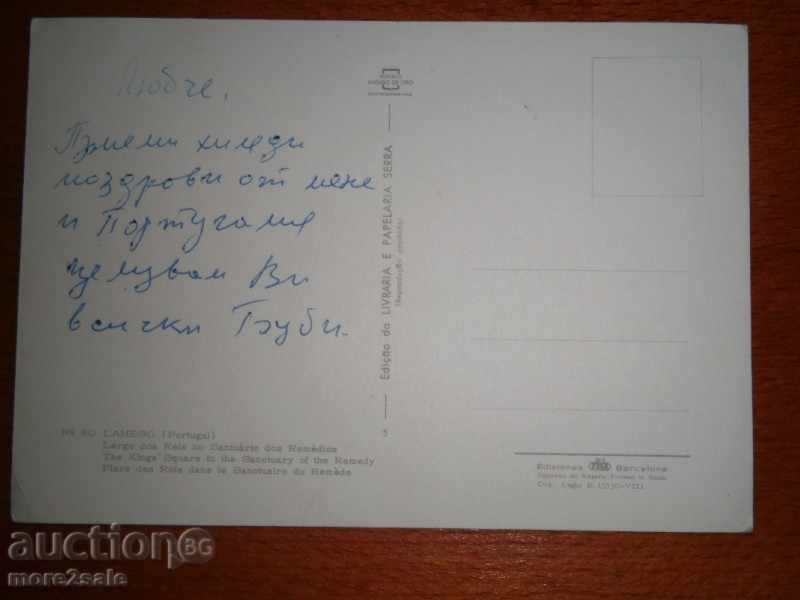 Любче,
Приеми хиляди
поздрови от мене
и Португалия
целувам Ви
всички Буби.
LAMEGO (Portugal)
Largo dos Reis no Santuário dos Remédios
The Kings' Square in the Sanctuary of the Remedy
Place des Rois dans le Sanctuaire du Remède
5
Edição da LIVRARIA E PAPELARIA SERRA
Ediciones Barcelona
Dep. Legal B. -VIII
auction BG
more2sale